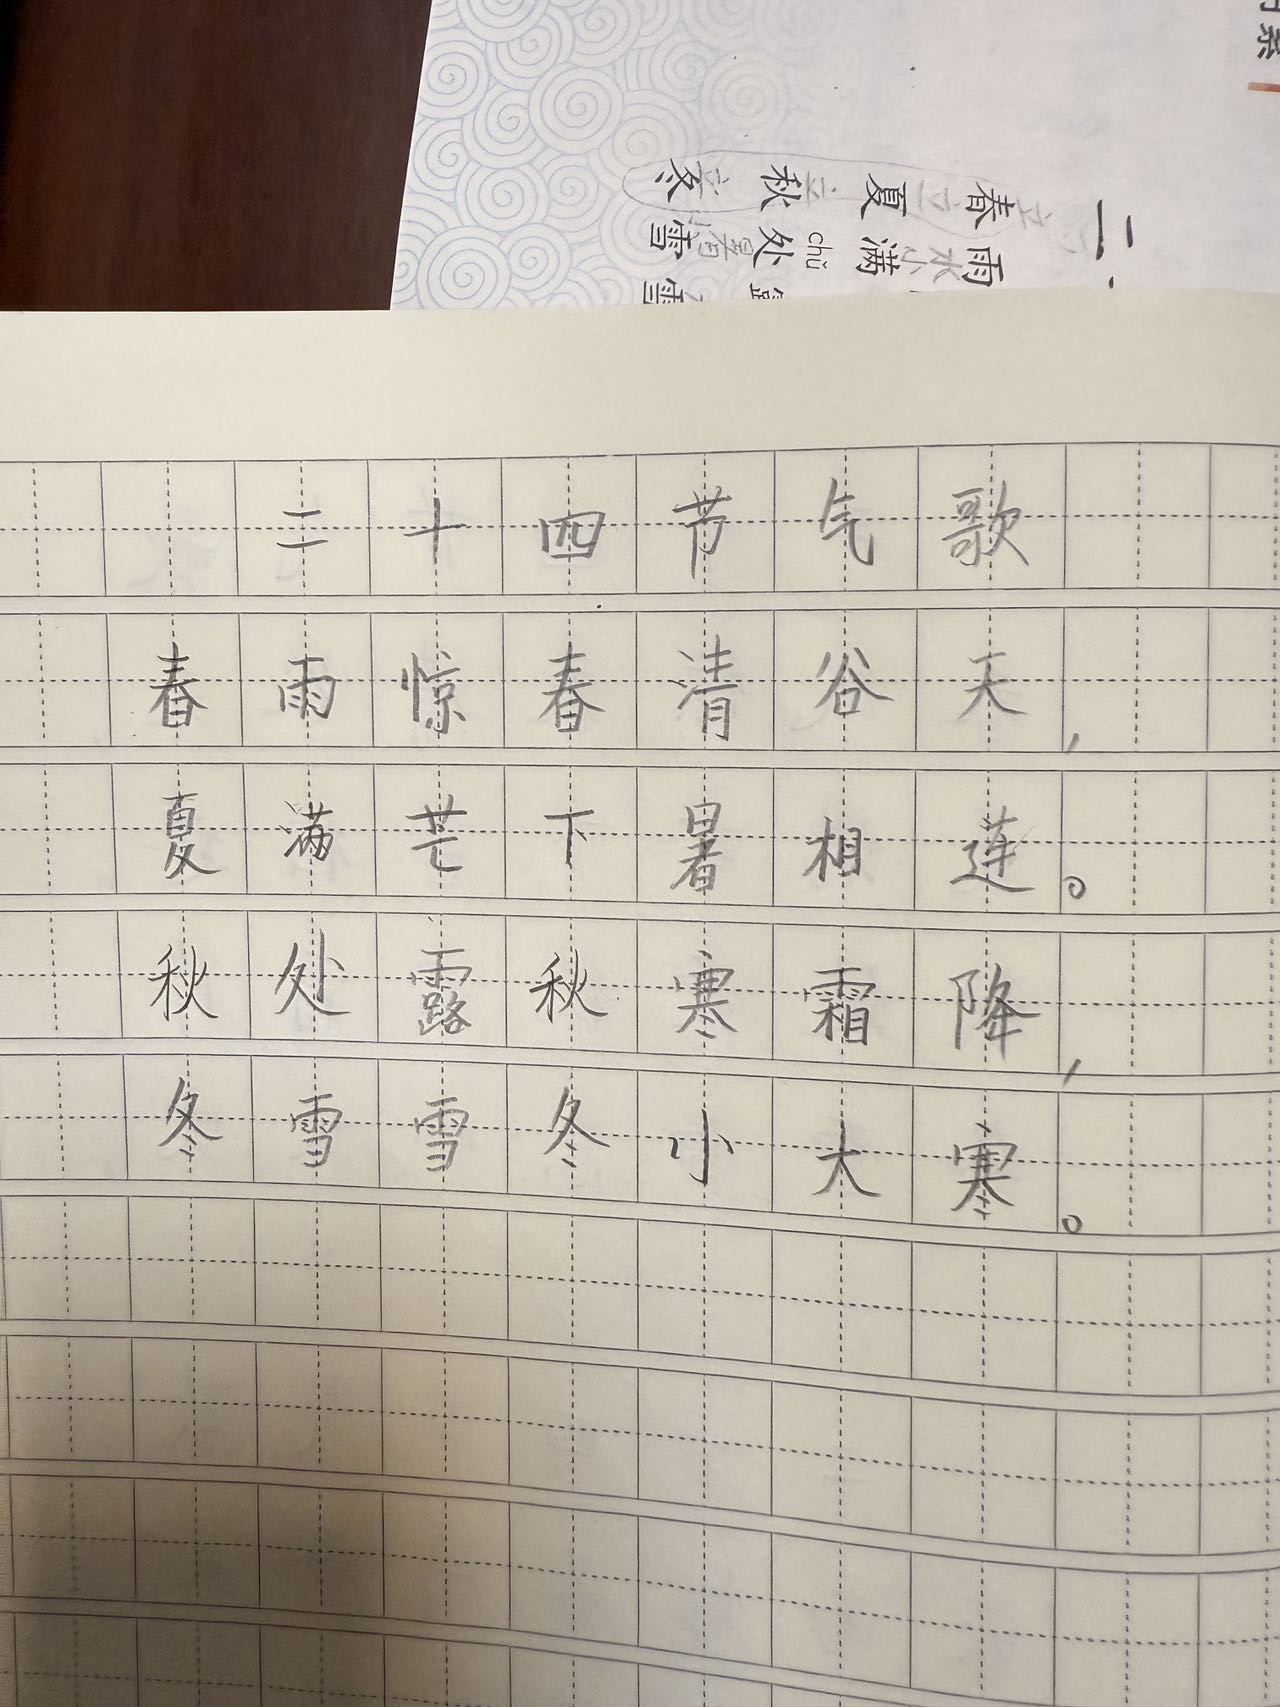 二、
立春 雨水
立夏 小满
chǔ
立秋 处暑
立冬 小雪
二十四节气歌
春雨惊春清谷天,
夏满芒下暑相莲。
秋处露秋寒霜降,
冬雪雪冬小大寒。